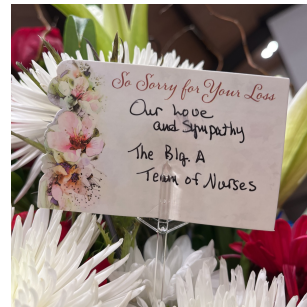 So Sorry for Your Loss
Our Love
and Sympathy
The Blg. A
Team of Nurses